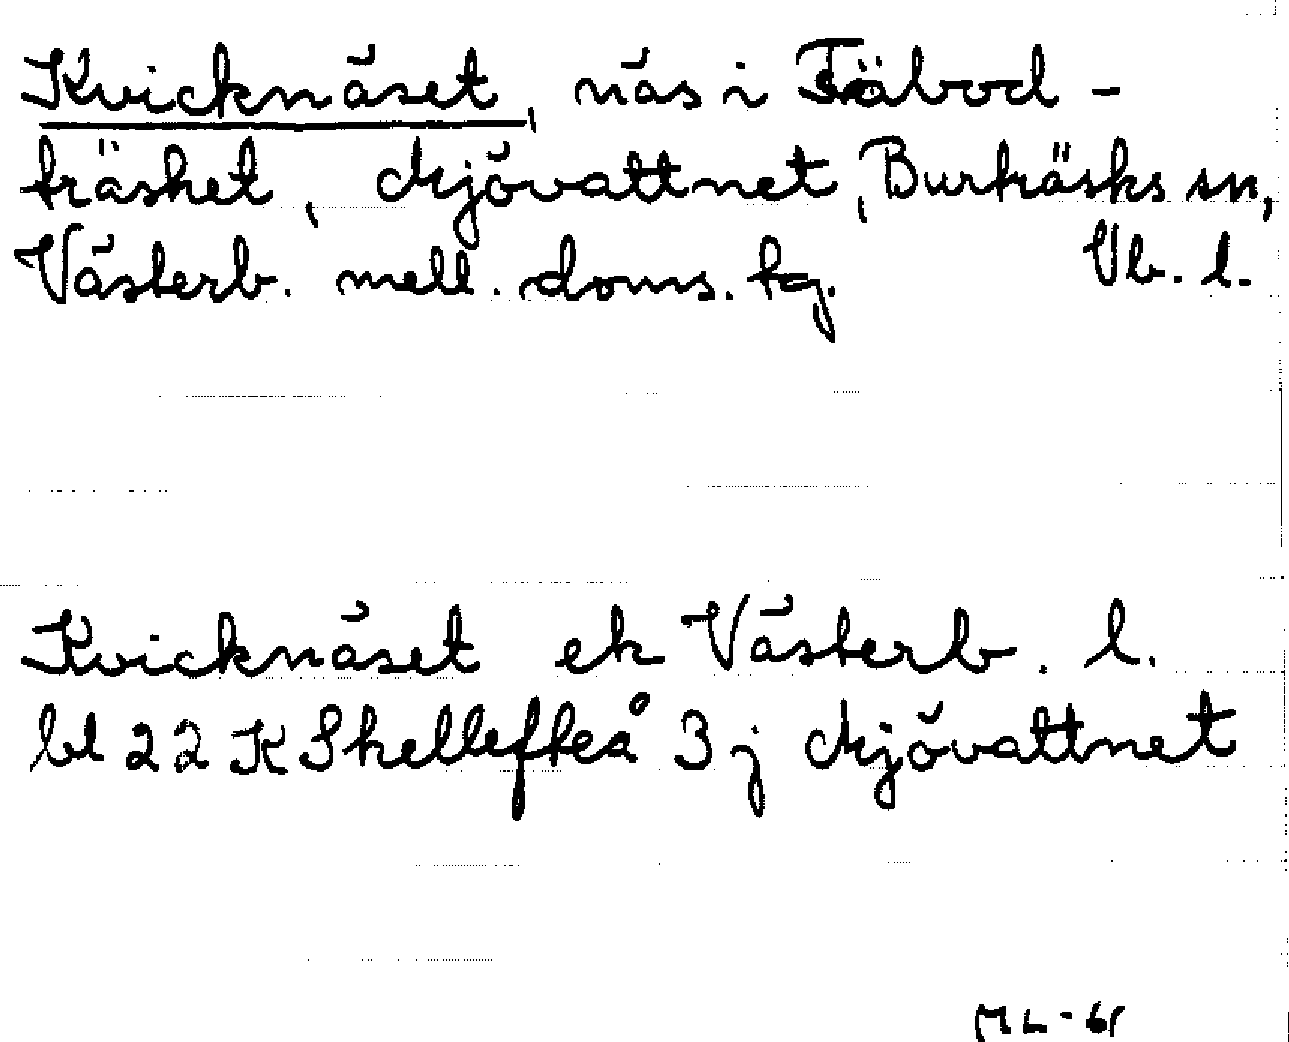 Kvicknäset, näs i Fäbod-
träsket, Mjövattnet, Burträsks sn,
Västerb. mell. doms. tg. Vb. l.
Kvicknäset ek Västerb. l.
bl 22 K Skellefteå 3 j Mjövattnet
ML-61